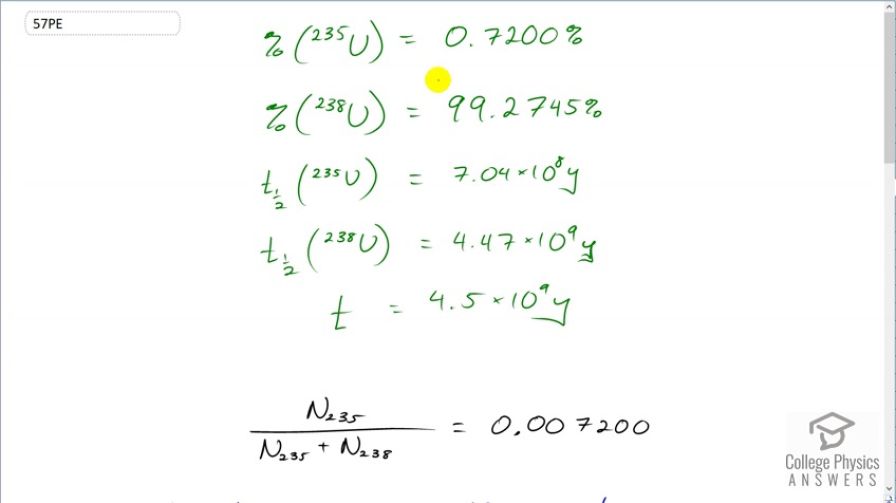 57PE
% (²³⁵U) = 0.7200%
% (²³⁸U) = 99.2745%
t½ (²³⁵U) = 7.04 × 10⁸ y
t½ (²³⁸U) = 4.47 × 10⁹ y
t = 4.5 × 10⁹ y
N₂₃₅ / (N₂₃₅ + N₂₃₈) = 0.007200
College Physics
ANSWERS